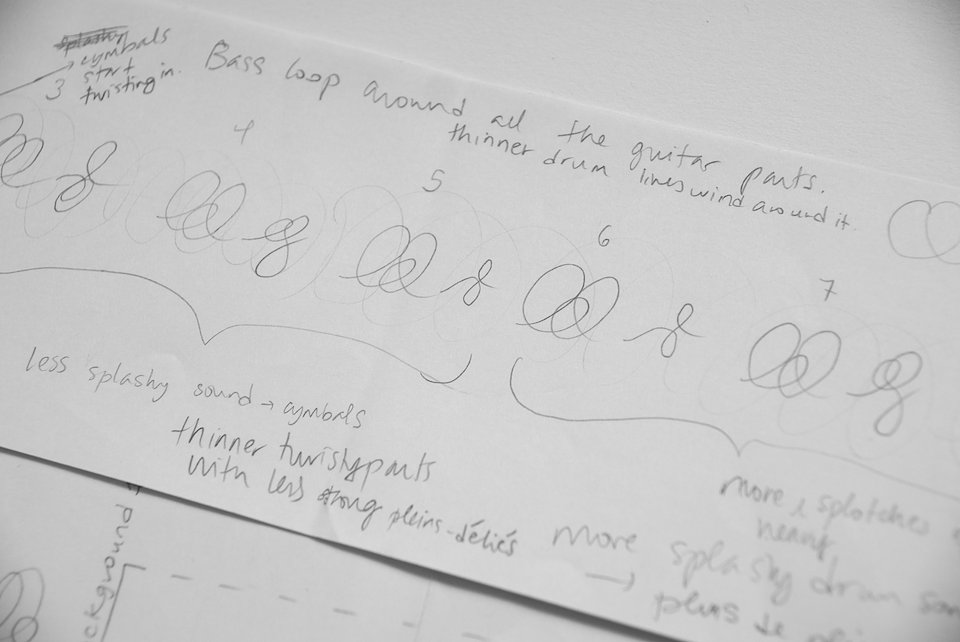 splashy
cymbals
start
twisting in.
Bass loop around all the guitar parts.
thinner drum lines wind around it.
3
4
5
6
7
less splashy sound → cymbals
thinner twisty parts
with less strong pleins-déliés
more splotches
heavy
more splashy drum
→ plus de